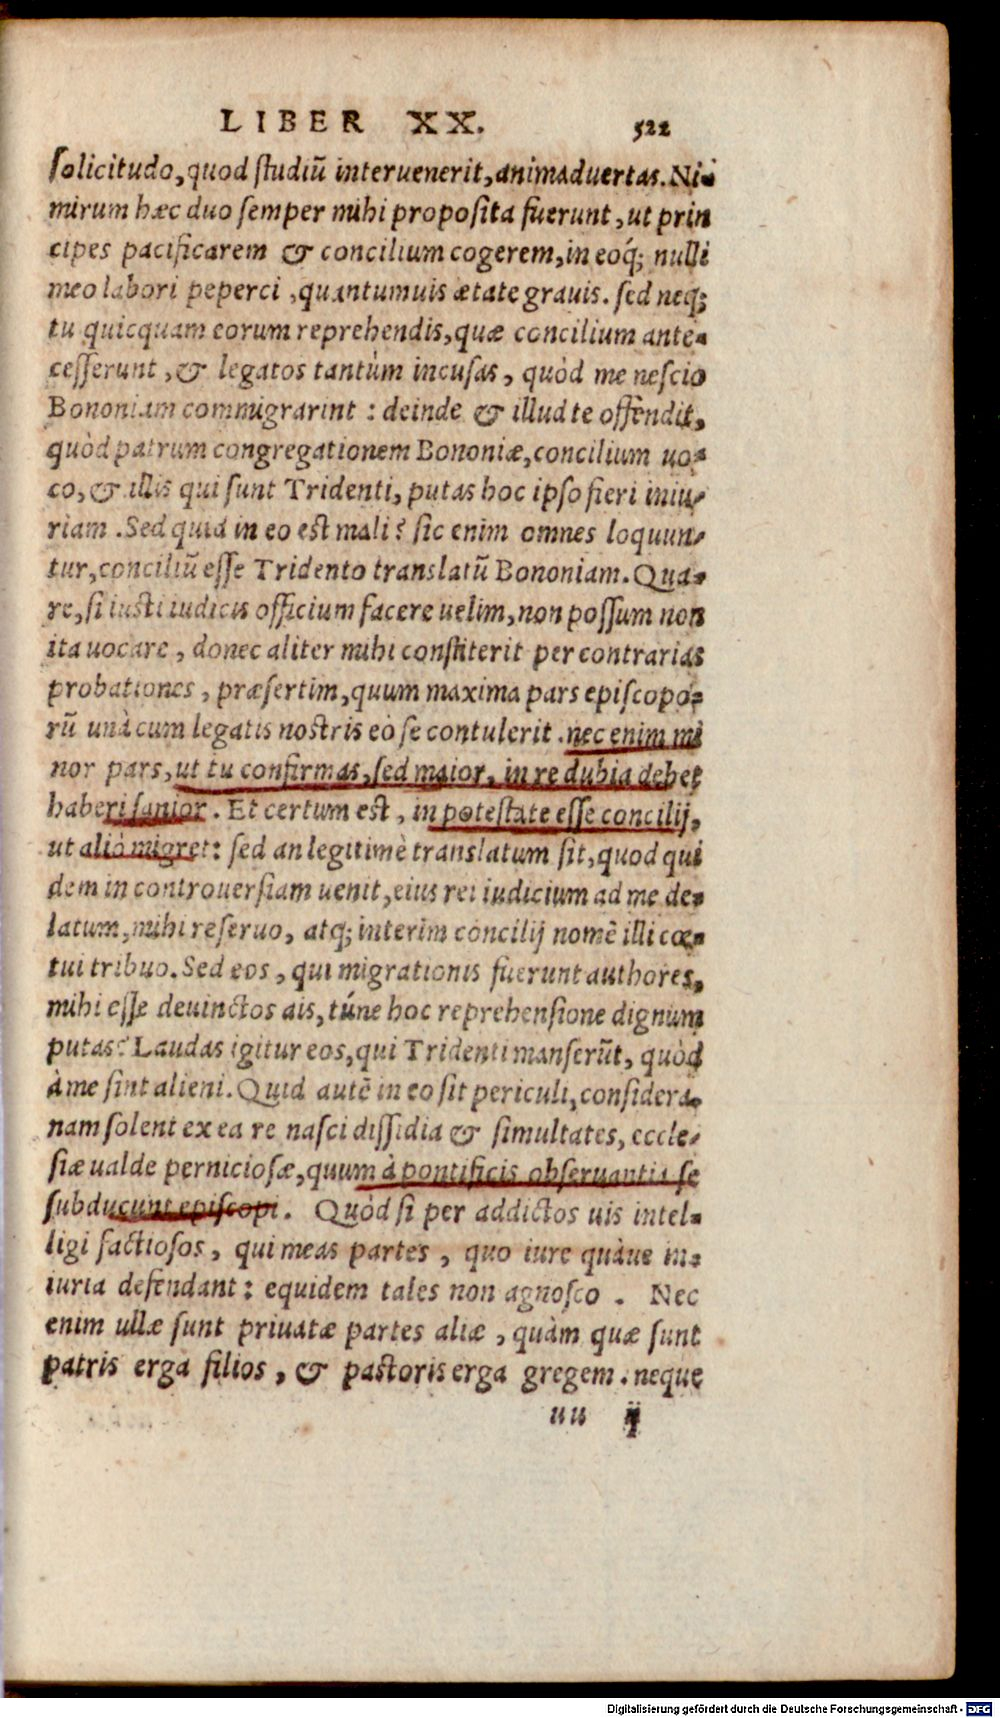 LIBER XX. 522
solicitudo, quod studiũ interuenerit, animaduertas. Ni-
mirum hæc duo semper mihi proposita fuerunt, ut prin
cipes pacificarem & concilium cogerem, in eoq́; nulli
meo labori peperci, quantumuis ætate grauis. sed neq;
tu quicquam eorum reprehendis, quæ concilium ante-
cesserunt, & legatos tantùm incusas, quòd me nescio
Bononiam commigrarint : deinde & illud te offendit,
quòd patrum congregationem Bononiæ, concilium uo-
co, & illis qui sunt Tridenti, putas hoc ipso fieri iniu-
riam. Sed quid in eo est mali? sic enim omnes loquun-
tur, conciliũ esse Tridento translatũ Bononiam. Qua-
re, si iusti iudicis officium facere uelim, non possum non
ita uocare, donec aliter mihi constiterit per contrarias
probationes, præsertim, quum maxima pars episcopo-
rũ unà cum legatis nostris eo se contulerit. nec enim mi
nor pars, ut tu confirmas, sed maior, in re dubia debet
haberi sanior. Et certum est, in potestate esse concilij,
ut aliò migret: sed an legitimè translatum sit, quod qui
dem in controuersiam uenit, eius rei iudicium ad me de-
latum, mihi reseruo, atq; interim concilij nomẽ illi cœ-
tui tribuo. Sed eos, qui migrationis fuerunt authores,
mihi esse deuinctos ais, túne hoc reprehensione dignum
putas? Laudas igitur eos, qui Tridenti manserũt, quòd
à me sint alieni. Quid autẽ in eo sit periculi, considera.
nam solent ex ea re nasci dissidia & simultates, eccle-
siæ ualde perniciosæ, quum à pontificis obseruantia se
subducunt episcopi. Quòd si per addictos uis intel-
ligi factiosos, qui meas partes, quo iure quàue in-
iuria defendant: equidem tales non agnosco. Nec
enim ullæ sunt priuatæ partes aliæ, quàm quæ sunt
patris erga filios, & pastoris erga gregem. neque
uu ij
Digitalisierung gefördert durch die Deutsche Forschungsgemeinschaft - DFG